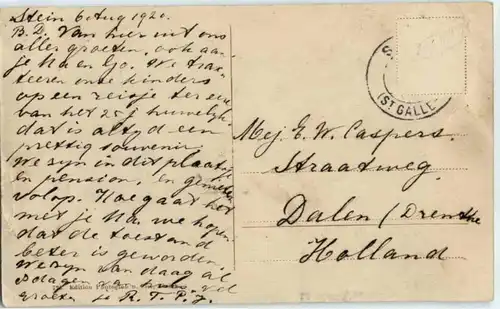 Stein 6 Aug 1920.
B. D. Van hier uit ons
aller groeten, ook aan
je Ma en Jo. We trak-
teeren onze kinders
op een reisje ter eere
van het 25 j huwelijk
dat is altyd een
prettig souvenir.
We zyn in dit plaatsje
en pension, en genieten
volop. Hoe gaat het
met je Ma, we hopen
dat de toestand
beter is geworden
We zyn van daag al
8 dagen
groeten je R. T. P. J.
Edition Photoglob
ST. GALLE
Mej. E. W. Caspers.
Straatweg.
Dalen / Drenthe
Holland